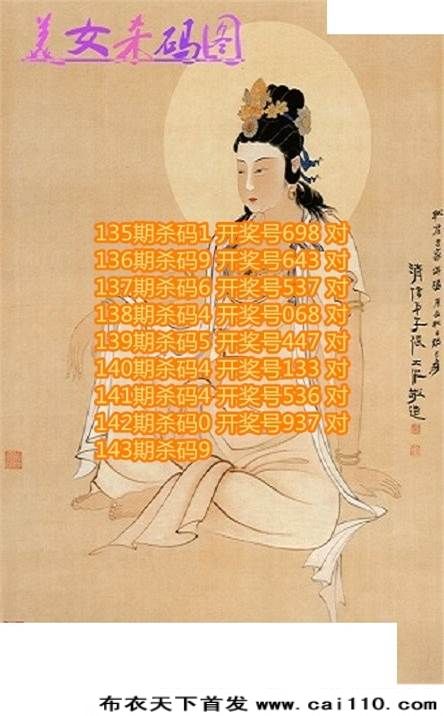 美女杀码图
135期杀码1 开奖号698 对
136期杀码9 开奖号643 对
137期杀码6 开奖号537 对
138期杀码4 开奖号068 对
139期杀码5 开奖号447 对
140期杀码4 开奖号133 对
141期杀码4 开奖号536 对
142期杀码0 开奖号937 对
143期杀码9
布衣天下首发 www.cai110.com